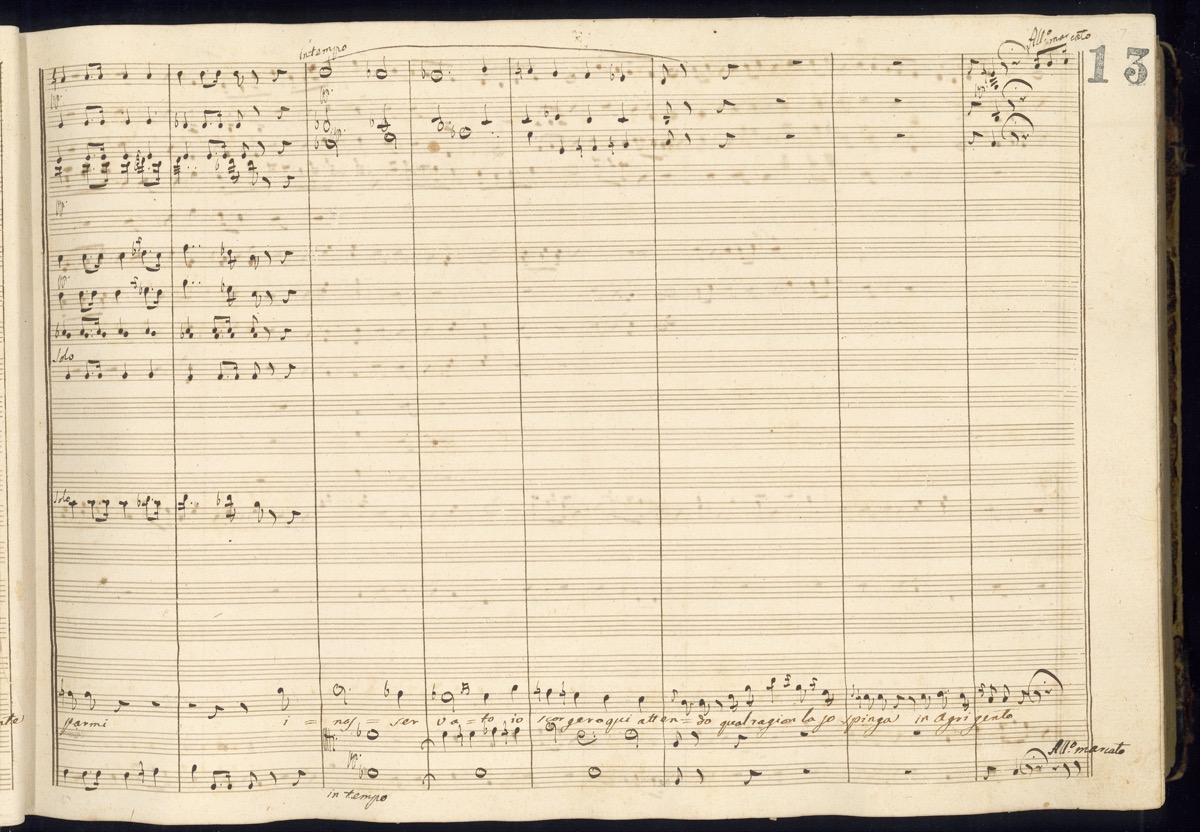 in tempo
All.º marcato
13
Solo
Solo
parmi i = nos = ser va = to io scorgero qui atten = do qual ragion la spinga in Agrigento
All.º marcato
in tempo